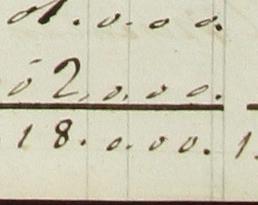 01.0.0.0.
62.0.0.0.
18.0.00. 1.